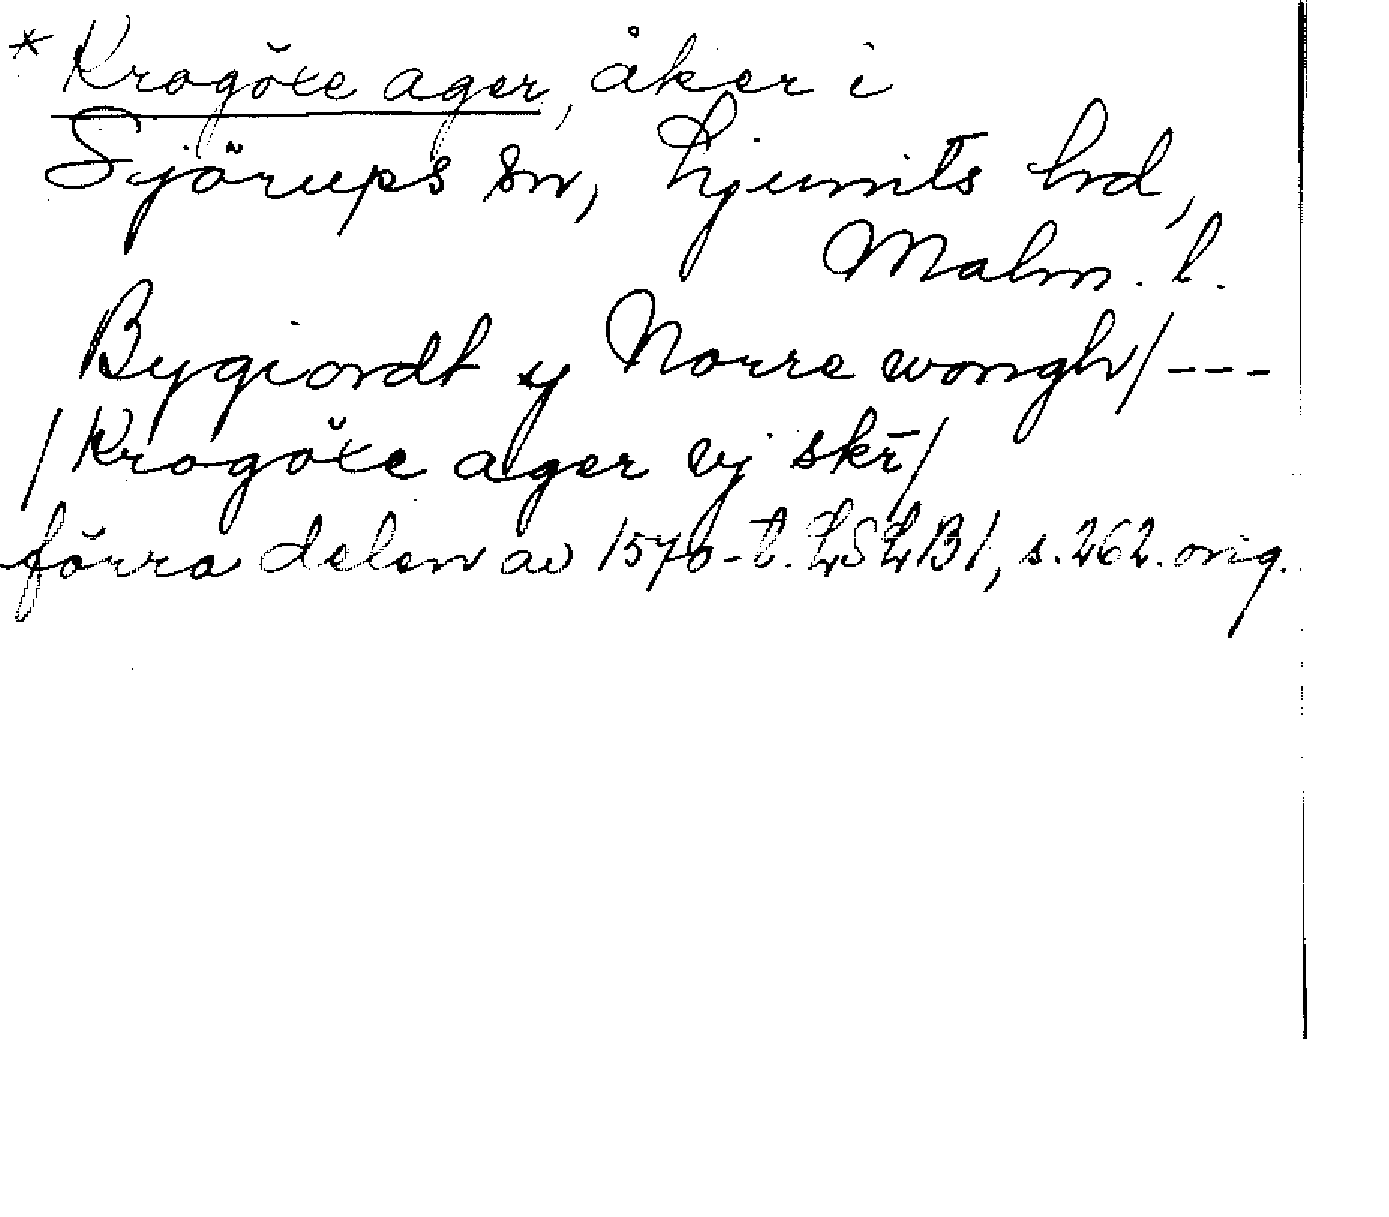 * Krogöxe ager, åker i
Sjörups sn, Ljunits hd,
Malm. l.
Bygiordt y Norre wongh/---
/Krogöxe ager vj skr̄/
förra delen av 1570-t. LSLB1, s. 262. orig.